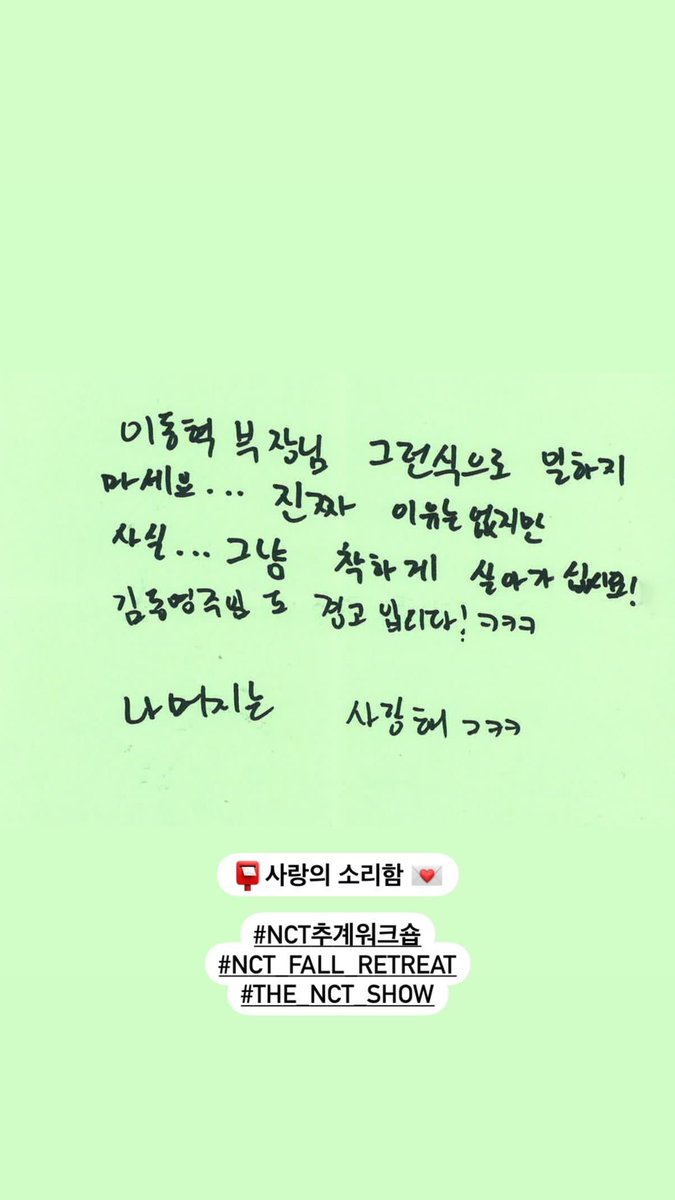 이동혁 부장님 그런식으로 일하지
마세요... 진짜 이유는 없지만
사실... 그냥 착하게 살아가십시요!
김동영주임도 경고입니다! ㅋㅋㅋ
나머지는 사랑해 ㅋㅋㅋ
📮사랑의 소리함 💌
#NCT추계워크숍
#NCT_FALL_RETREAT
#THE_NCT_SHOW